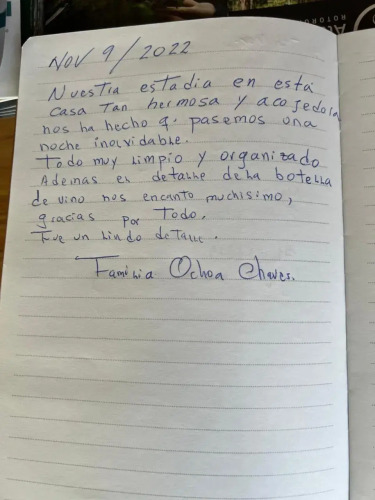 NOV 9/2022
Nuestra estadia en esta
casa Tan hermosa y acojedora
nos ha hecho q. pasemos una
noche inolvidable.
Todo muy Limpio y organizado
Ademas el detalle de la botella
de vino nos encanto muchisimo,
gracias por Todo.
Fue un lindo detalle.
Familia Ochoa Chaves.
ROTORU